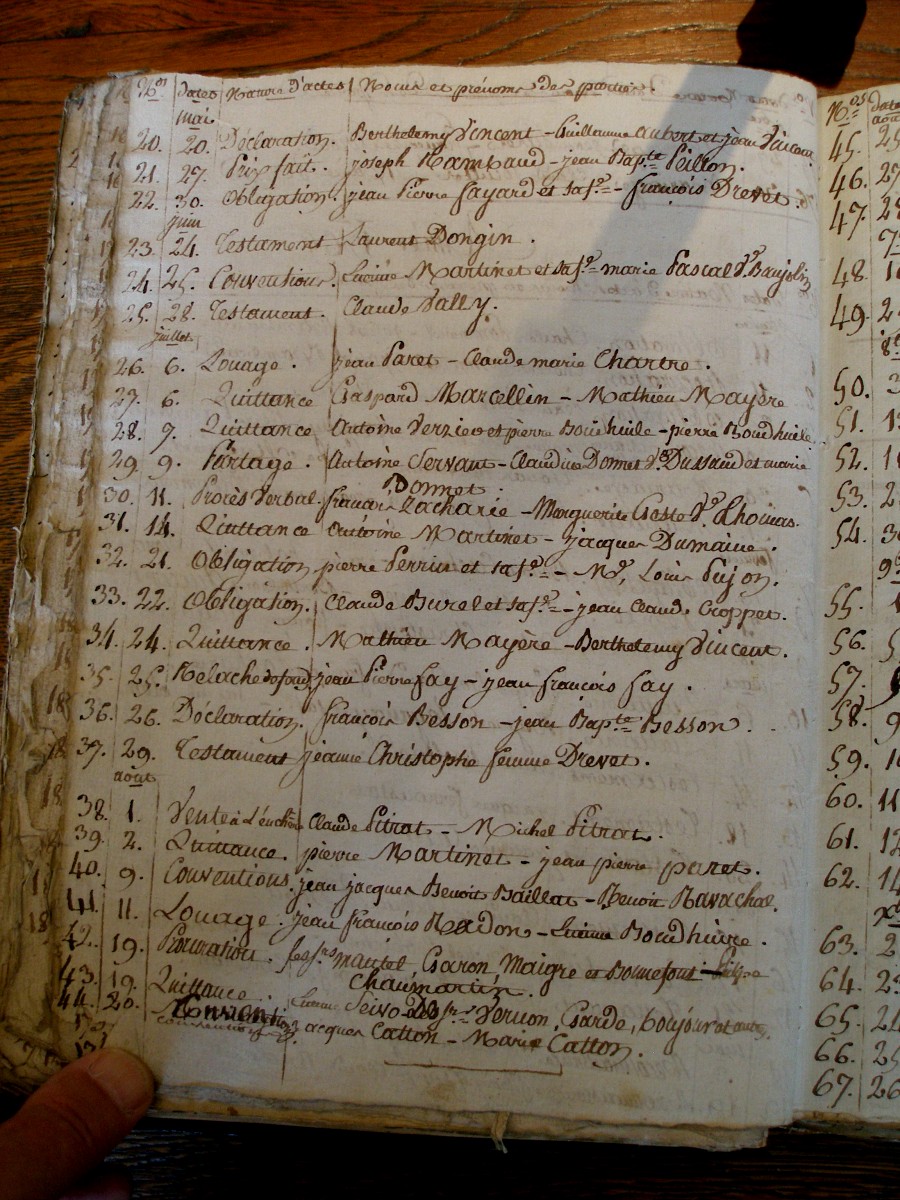 Nos dates Nature d'actes Noms et prénoms des parties.
mai
20. 20. Déclaration. Berthelemy Vincent - Guillaume Aubert et jean Vincent
21. 27. Prix fait. joseph Rambaud - jean Bapte Peillon.
22. 30. Obligation. jean Pierre fayard et sa fe - françois Drevet.
juin
23. 24. Testament Laurent Dongin.
24. 25. Conventions. Martinet et sa fe marie Pascal Ve Baujolin
25. 28. Testament. Claude Vally.
juillet
26. 6. Louage. jean Paret - Claude marie Chartre.
27. 6. Quittance Gaspard Marcellin - Mathieu Mayère
28. 9. Quittance Antoine Verzieo et pierre Boudhuile - pierre Boudhuile
29. 9. Partage. Antoine Servant - Claudine Donnet Ve Dussaud et marie
Donnet.
30. 11. Procès Verbal. françois Zacharie - Marguerite Ve Thomas.
31. 14. Quittance Antoine Martinet - jacques Dumaine.
32. 21. Obligation pierre Perrin et sa fe - Me, Louis Pujon.
33. 22. Obligation. Claude Burel et sa fe - jean Claude Croppet.
34. 24. Quittance. Mathieu Mayère - Berthelemy Vincent.
35. 25. Relache de fond jean Pierre fay - jean françois fay.
36. 26. Déclaration. françois Besson - jean Bapte Besson.
37. 29. Testament jeanne Christophe femme Drevet.
août
38. 1. Vente à l'enchère Claude Pitrat - Michel Pitrat.
39. 2. Quittance. pierre Martinet - jean pierre paret.
40. 9. Conventions. jean jacques Benoit Baillat - Benoit Ravachol.
41. 11. Louage. jean françois Radon - Boudhuire.
42. 19. Procuration. Maigre et Bonnefont
Chaumartin.
43. 19. Quittance. Vernon, Garde,
44. 20. conventions jacques Catton - Marie Catton.
Nos dates
août
45. 25
46. 27
47. 28
48. 1
49. 2
50. 3
51. 1
52. 1
53. 2
54. 30
55.
56. 5
57.
58. 9
59. 1
60. 11
61. 12
62. 14
63. 2
64. 23
65. 24
66. 25
67. 26